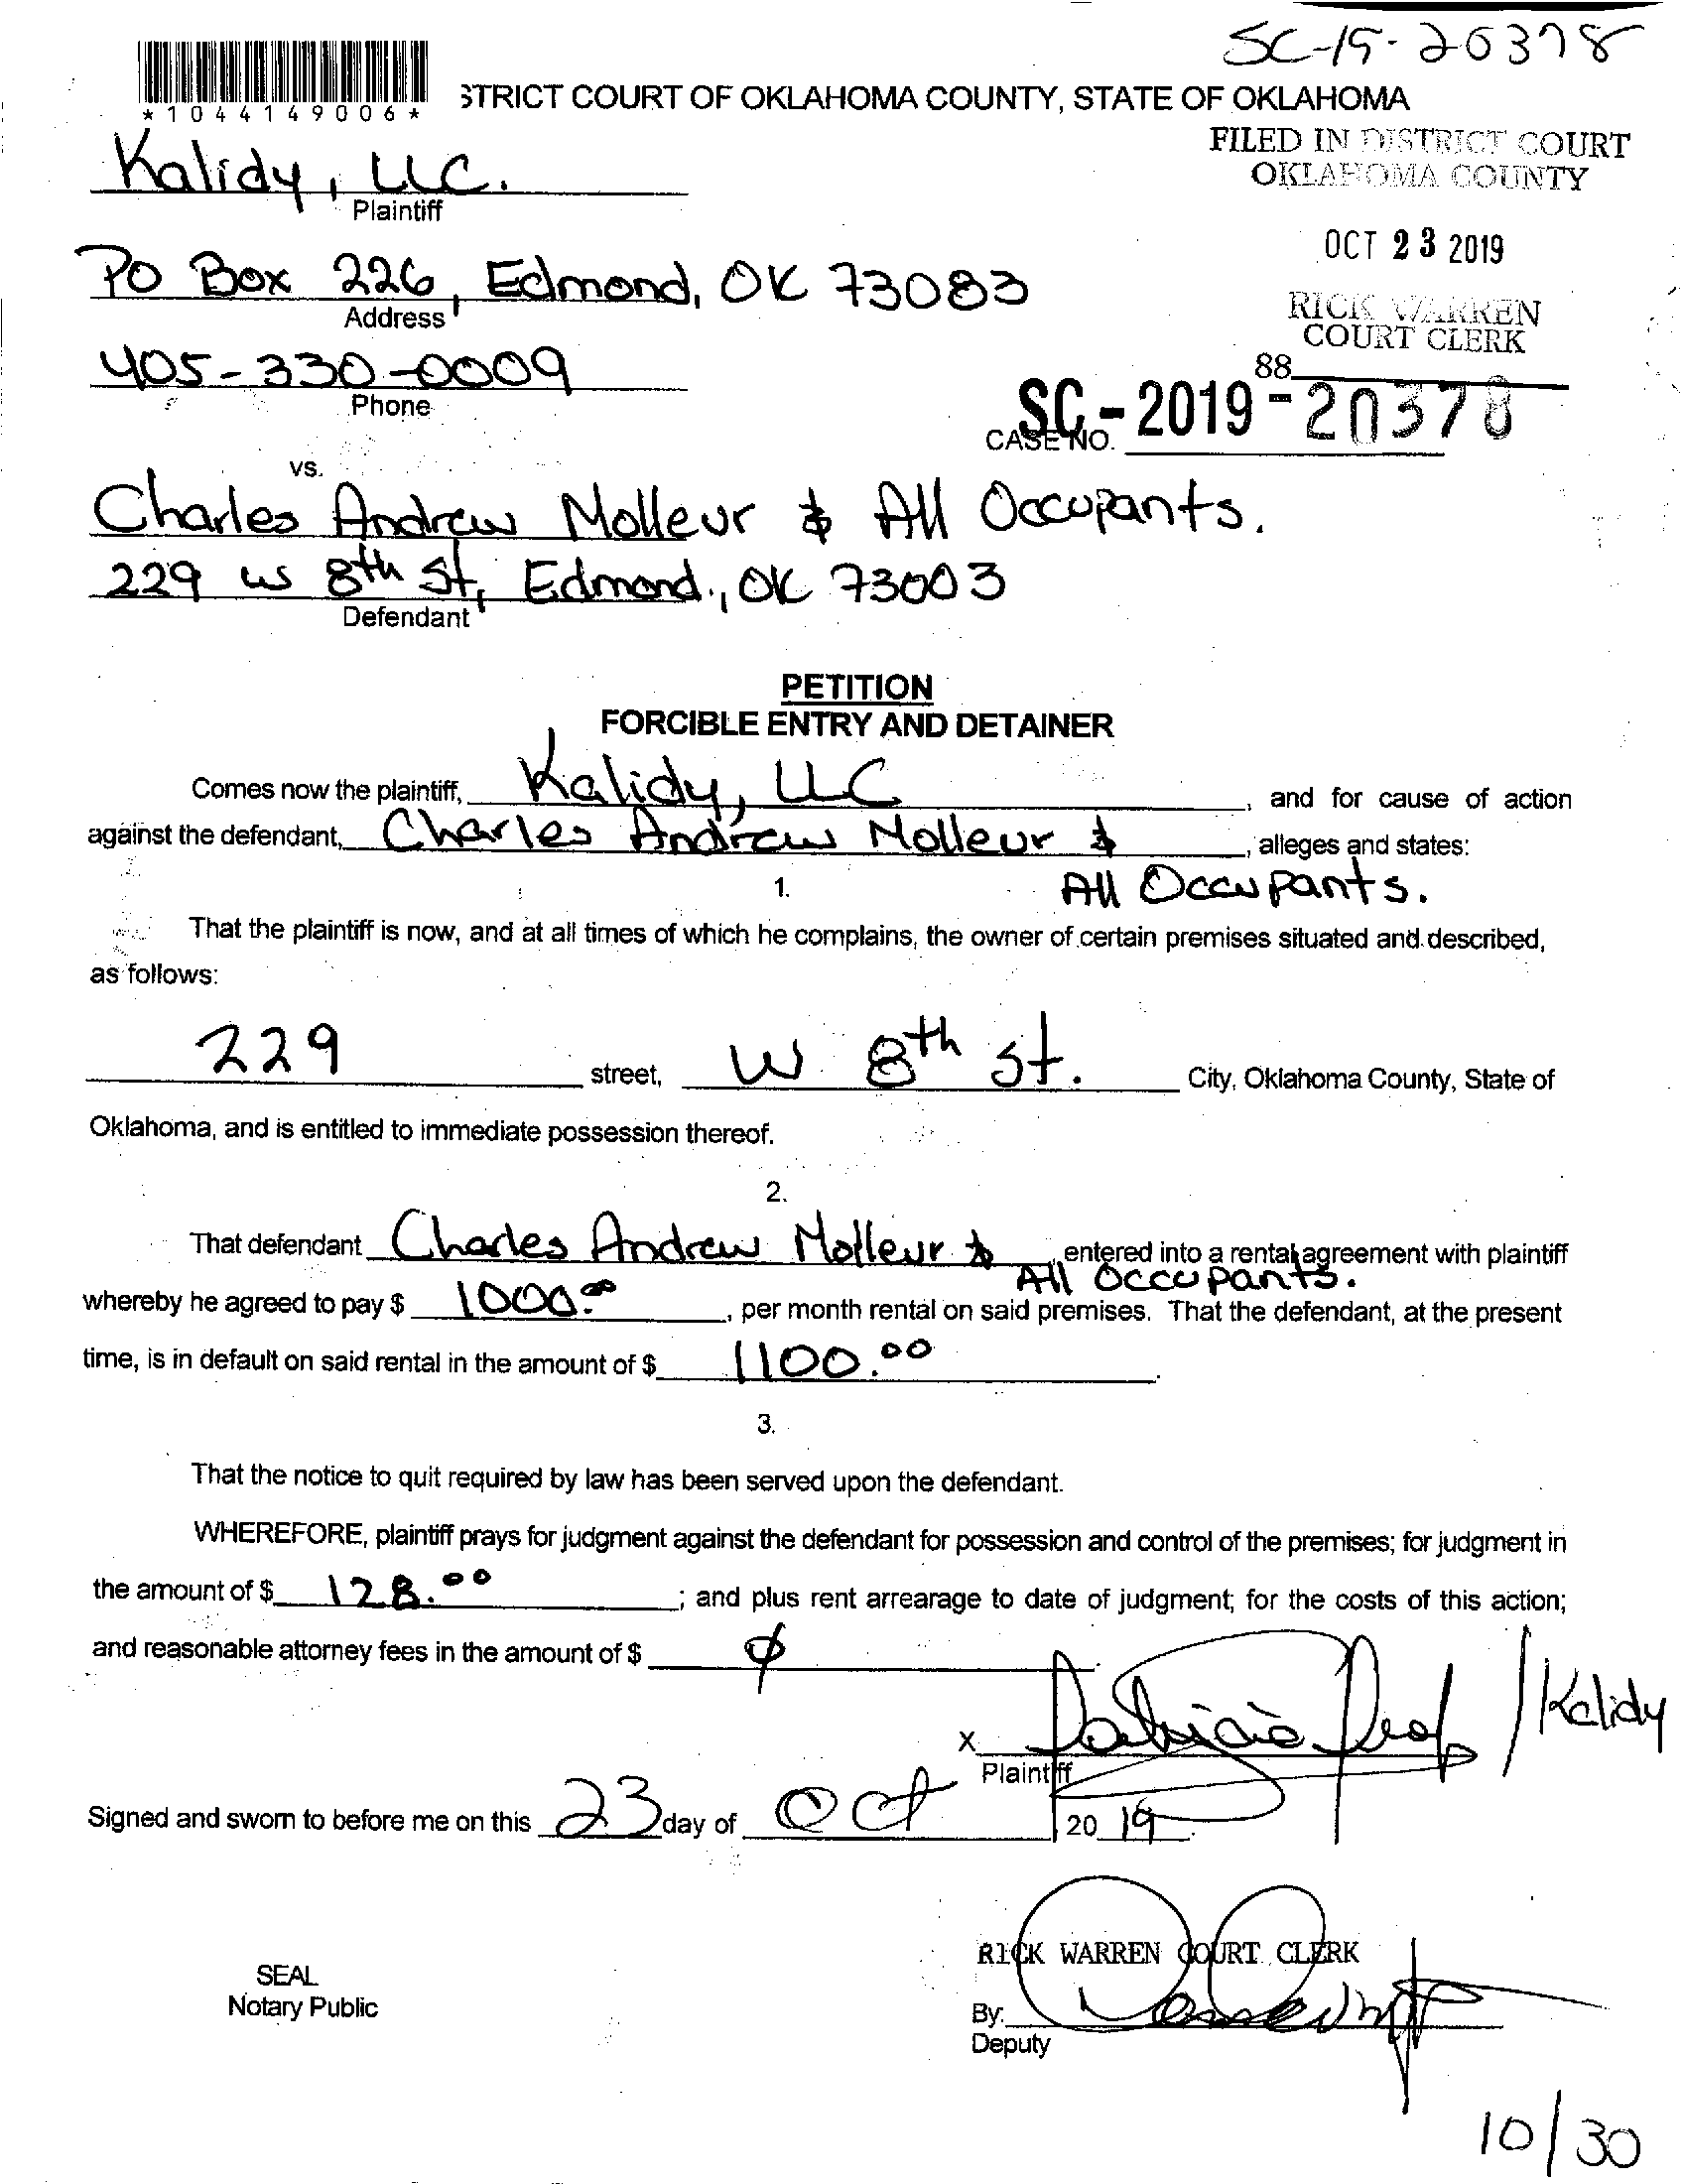 SC-19-20378
*1044149006*
STRICT COURT OF OKLAHOMA COUNTY, STATE OF OKLAHOMA
FILED IN DISTRICT COURT
OKLAHOMA COUNTY
Kalidy, LLC.
Plaintiff
OCT 23 2019
PO Box 226, Edmond, OK 73083
Address
RICK WARREN
COURT CLERK
405-330-0009
Phone
88
SC-2019-20378
CASE NO.
vs.
Charles Andrew Molleur & All Occupants.
229 W 8th St, Edmond, OK 73003
Defendant
PETITION
FORCIBLE ENTRY AND DETAINER
Comes now the plaintiff, Kalidy, LLC, and for cause of action
against the defendant, Charles Andrew Molleur &, alleges and states:
All Occupants.
1.
That the plaintiff is now, and at all times of which he complains, the owner of certain premises situated and described,
as follows:
229 street, W 8th St. City, Oklahoma County, State of
Oklahoma, and is entitled to immediate possession thereof.
2.
That defendant Charles Andrew Molleur &, entered into a rental agreement with plaintiff
All Occupants.
whereby he agreed to pay $ 1000.00, per month rental on said premises. That the defendant, at the present
time, is in default on said rental in the amount of $ 1100.00.
3.
That the notice to quit required by law has been served upon the defendant.
WHEREFORE, plaintiff prays for judgment against the defendant for possession and control of the premises; for judgment in
the amount of $ 128.00; and plus rent arrearage to date of judgment; for the costs of this action;
and reasonable attorney fees in the amount of $ ϕ
X Patricia / Kalidy
Plaintiff
Signed and sworn to before me on this 23 day of Oct 2019.
RICK WARREN COURT CLERK
SEAL
Notary Public
By:
Deputy
10/30